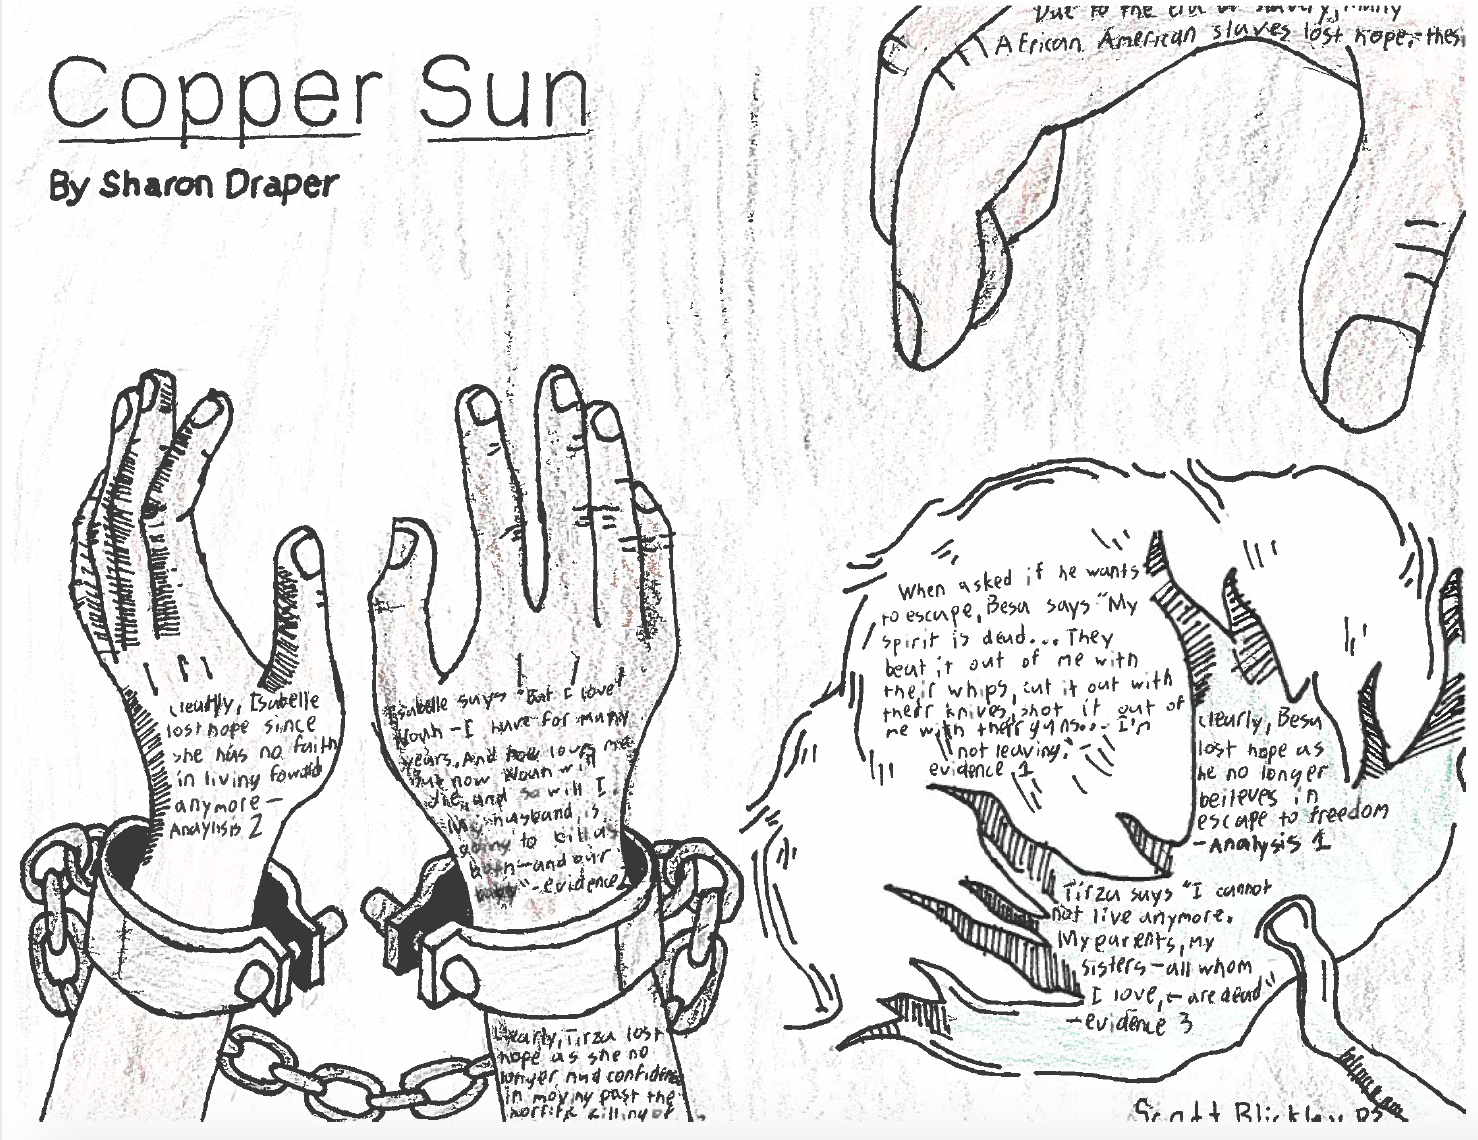 Copper Sun
By Sharon Draper
Due to the end of slavery, many
African American slaves lost hope, thes
When asked if he wants
to escape, Besa says "My
spirit is dead... They
beat it out of me with
their whips, cut it out with
their knives, shot it out of
me with their guns... I'm
not leaving." -
evidence 1
Clearly, Besa
lost hope as
he no longer
beileves in
escape to freedom
- Analysis 1
Tirza says "I cannot
not live anymore.
My parents, my
sisters - all whom
I love, - are dead"
- evidence 3
Clearly, Isabelle
lost hope since
she has no faith
in living foward
anymore -
Analysis 2
Isabelle says "But I love
Noah - I have for many
years. And he loves me
But now Noah will
die, and so will I.
My husband is
going to kill us
both - and our
baby" - evidence
Clearly, Tirza lost
hope as she no
longer had confidence
in moving past the
horrific killing of
Scott Blickley P3